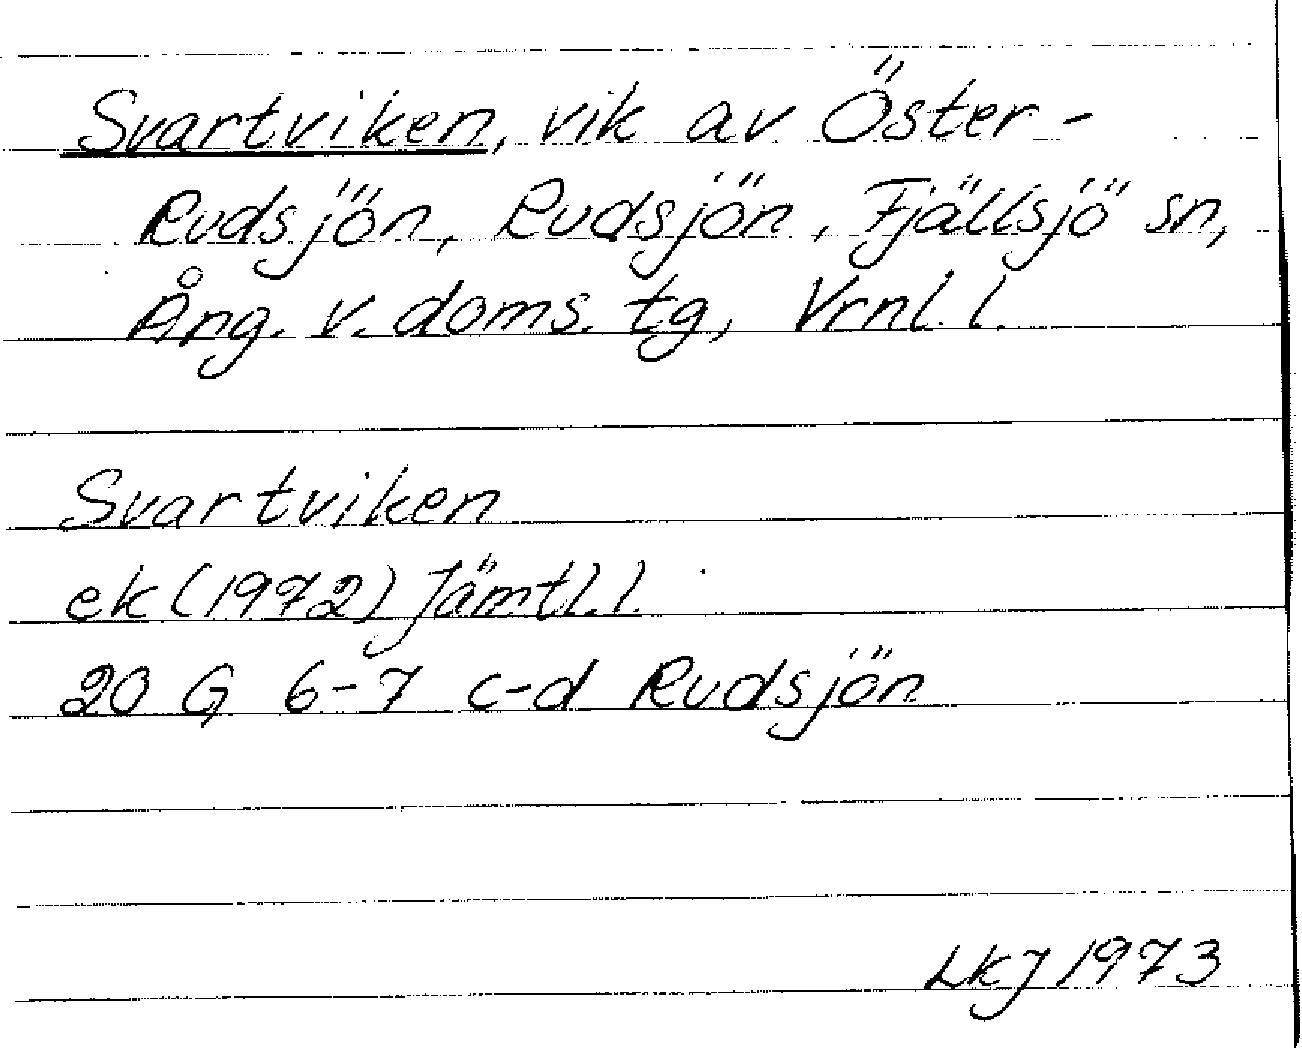 Svartviken, vik av Öster-
Rudsjön, Rudsjön, Fjällsjö sn,
Ång. v. doms. tg, Vrnl. l.
Svartviken
ek (1972) Jämtl. l.
20 G 6-7 c-d Rudsjön
LkJ 1973